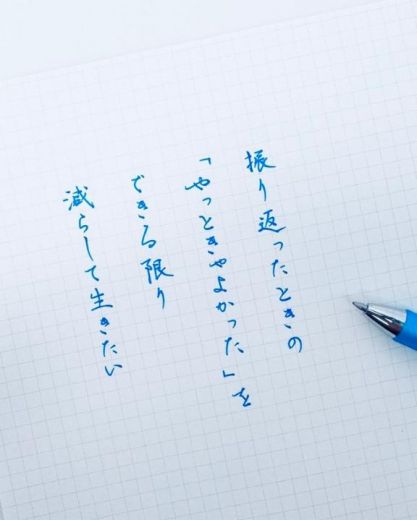 振り返ったときの
「やっときゃよかった」を
できる限り
減らして生きたい